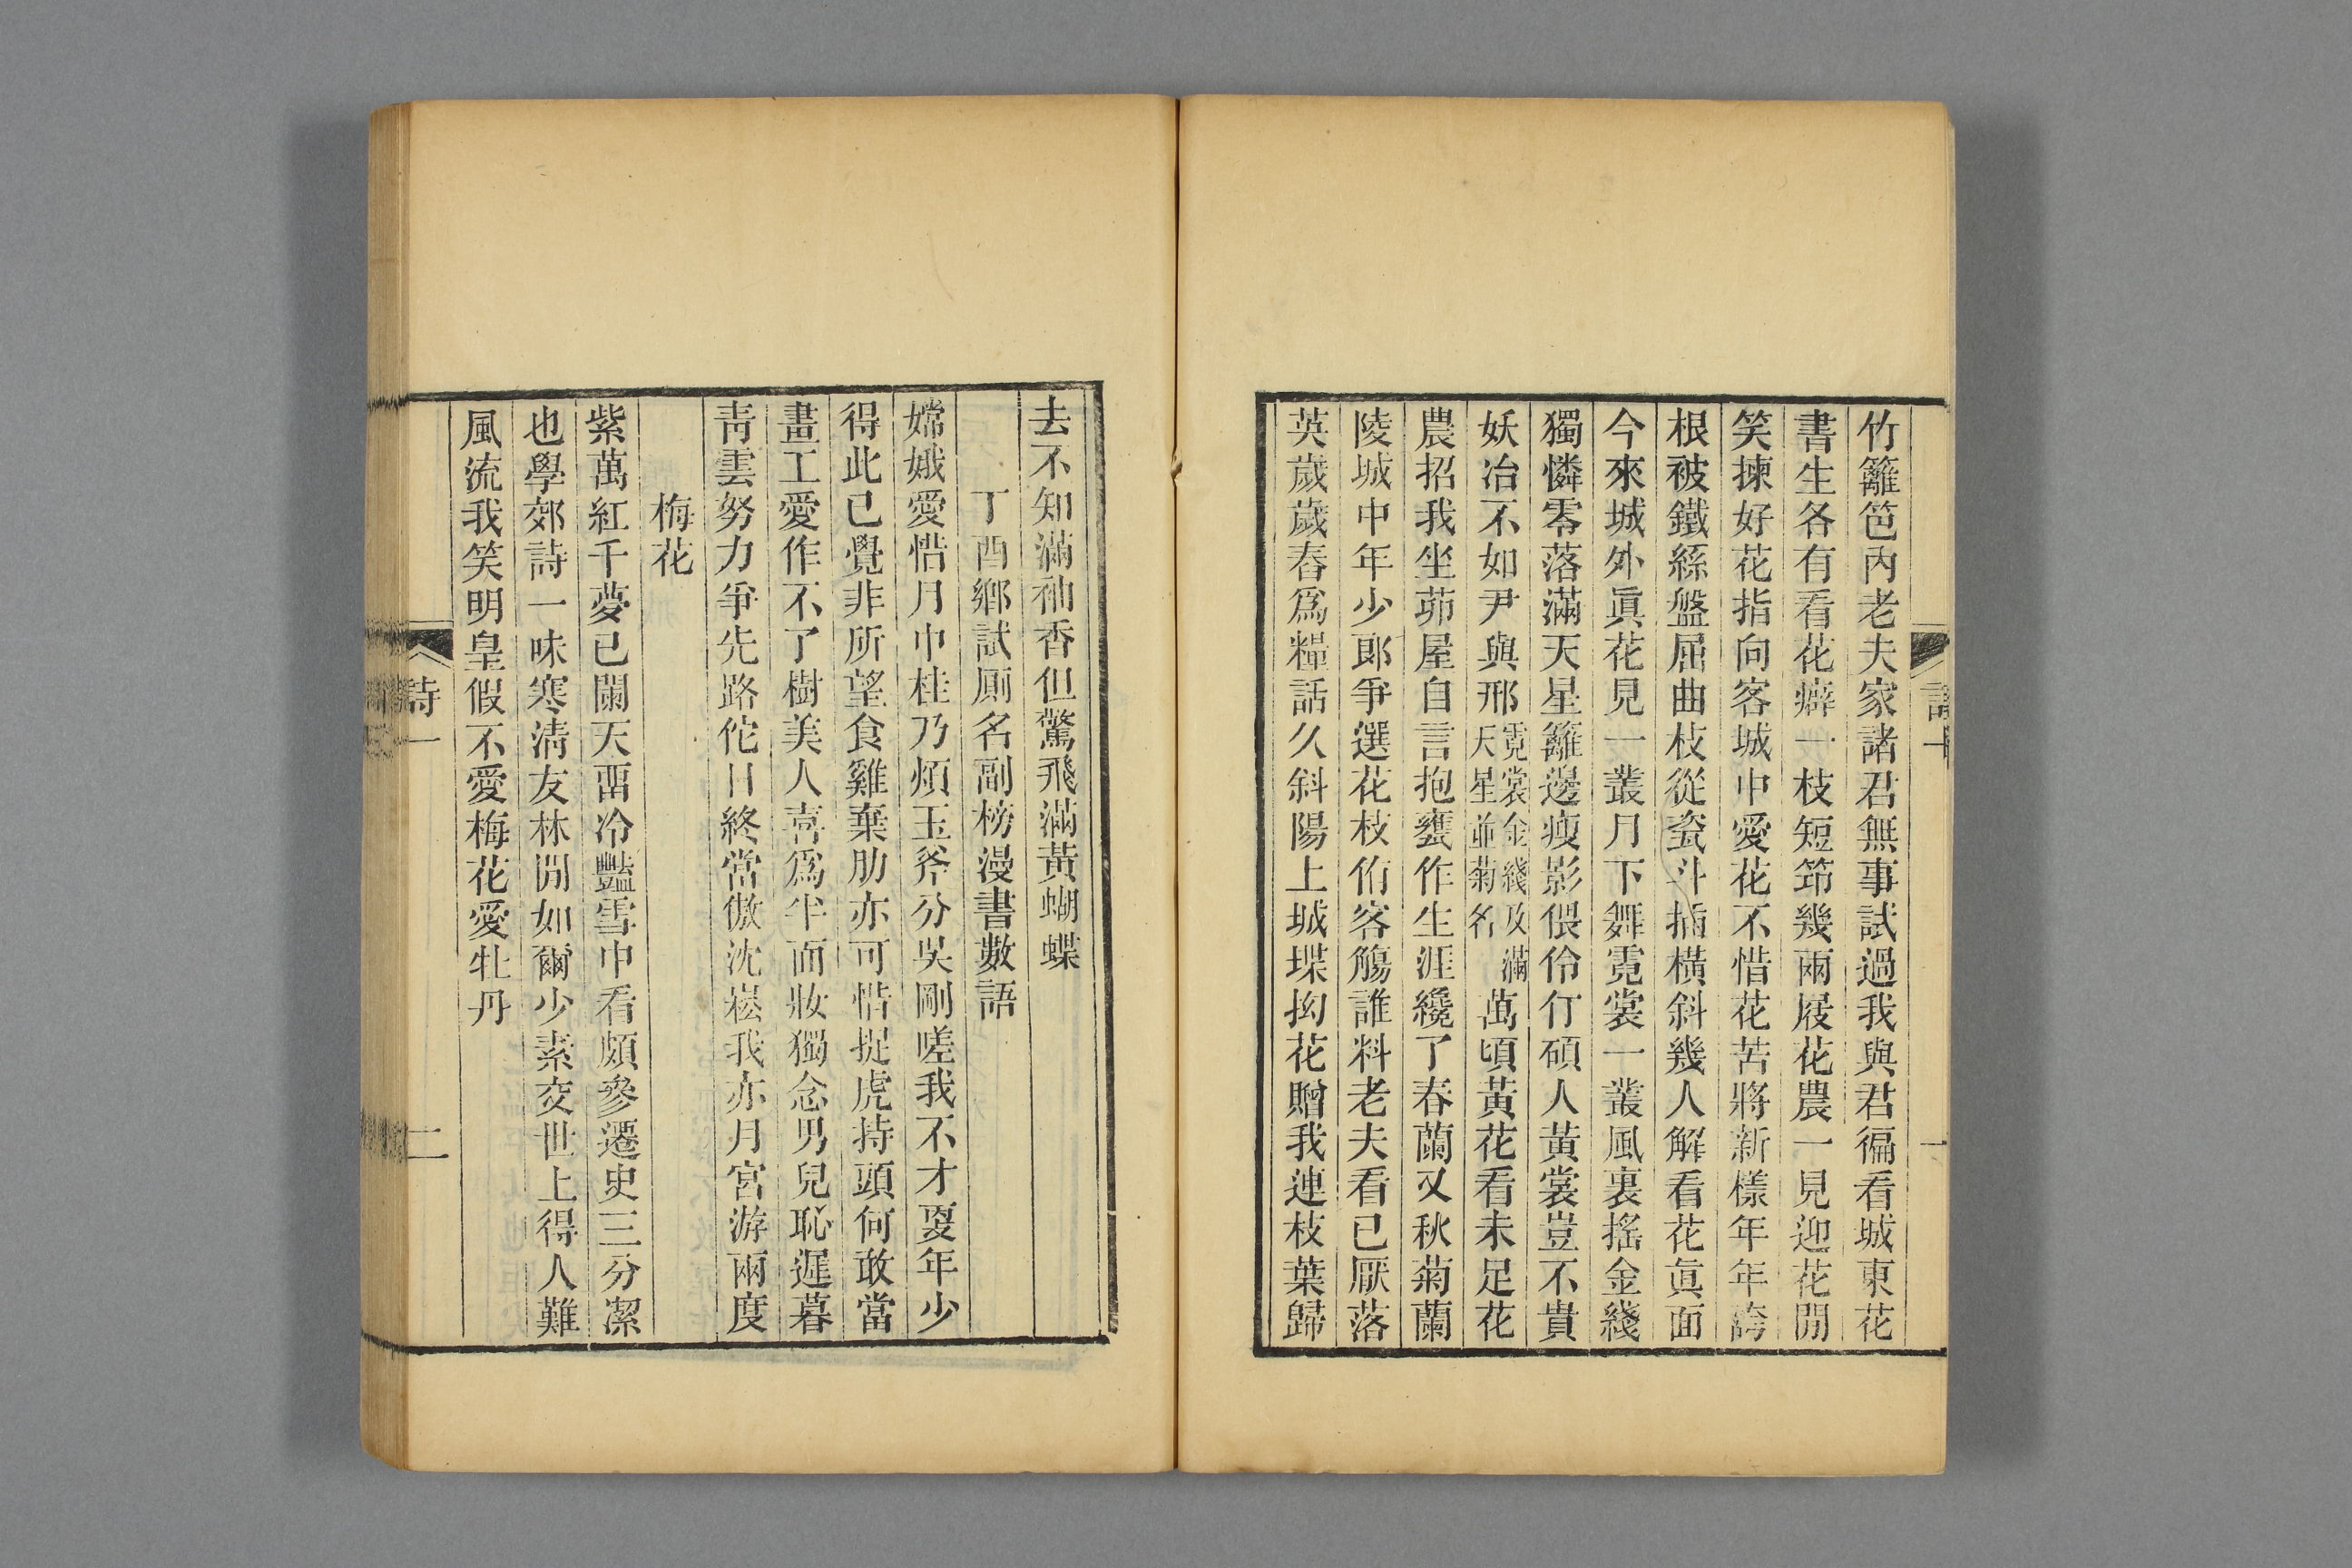 竹籬笆內老夫家諸君無事試過我與君徧看城東花
書生各有看花癖一枝短笻幾兩屐花農一見迎花開
笑揀好花指向客城中愛花不惜花苦將新樣年年誇
根被鐵絲盤屈曲枝從瓷斗插橫斜幾人解看花眞面
今來城外眞花見一叢月下舞霓裳一叢風裏搖金綫
獨憐零落滿天星籬邊瘦影偎伶仃碩人黃裳豈不貴
妖冶不如尹與邢霓裳金綫及滿天星並菊名萬頃黃花看未足花
農招我坐茆屋自言抱甕作生涯纔了春蘭又秋菊蘭
陵城中年少郞爭選花枝侑客觴誰料老夫看已厭落
英歲歲舂爲糧話久斜陽上城堞拗花贈我連枝葉歸
去不知滿袖香但驚飛滿黃蝴蝶
丁酉鄕試厠名副榜漫書數語
嫦娥愛惜月中桂乃煩玉斧分吳剛嗟我不才夏年少
得此已覺非所望食雞棄肋亦可惜捉虎持頭何敢當
畫工愛作不了樹美人喜爲半面妝獨念男兒恥遲暮
靑雲努力爭先路佗日終當傲沈崧我亦月宮游兩度
梅花
紫萬紅千夢已闌天畱冷豔雪中看頗參遷史三分潔
也學郊詩一味寒淸友林閒如爾少素交世上得人難
風流我笑明皇假不愛梅花愛牡丹
詩一
二